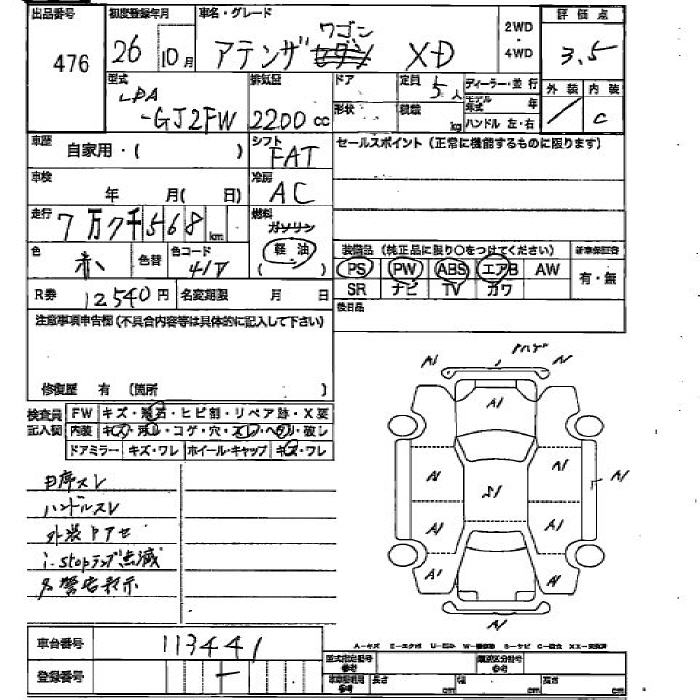 出品番号
476
初度登録年月
26 10月
車名・グレード
ワゴン
アテンザ セダン XD
2WD
・
4WD
評価点
3.5
型式
LDA
-GJ2FW
排気量
2200 cc
ドア
形状
定員
5人
積載
kg
ディーラー・並行
モデル年式 年
ハンドル 左・右
外装 内装
/ C
車歴
自家用・( )
シフト
FAT
セールスポイント(正常に機能するものに限ります)
車検
年 月( 日)
冷房
AC
走行
7万7千568 km
燃料
ガソリン
軽油
( )
色
赤
色替
色コード
41V
装備品(純正品に限り○をつけてください)
PS PW ABS エアB AW
SR ナビ TV カワ
新車保証書
有・無
R券
12540円
名変期限 月 日
後日品
注意事項申告欄(不具合内容等は具体的に記入して下さい)
修復歴 有(箇所 )
検査員
記入欄
FW キズ・飛石・ヒビ割・リペア跡・X要
内装 キズ・汚れ・コゲ・穴・スレ・ヘタリ・破レ
ドアミラー キズ・ワレ ホイール・キャップ キズ・ワレ
ハンドルスレ
i-stopランプ点滅
名警告表示
A1
A1
A1
A1
A1
S1
A1
A1
A1
A1
A1
A1
車台番号
113441
登録番号
-
A-キズ E-エクボ U-凹ミ
型式指定番号
参考
類別区分番号
参考
長さ cm
幅 cm
高さ cm